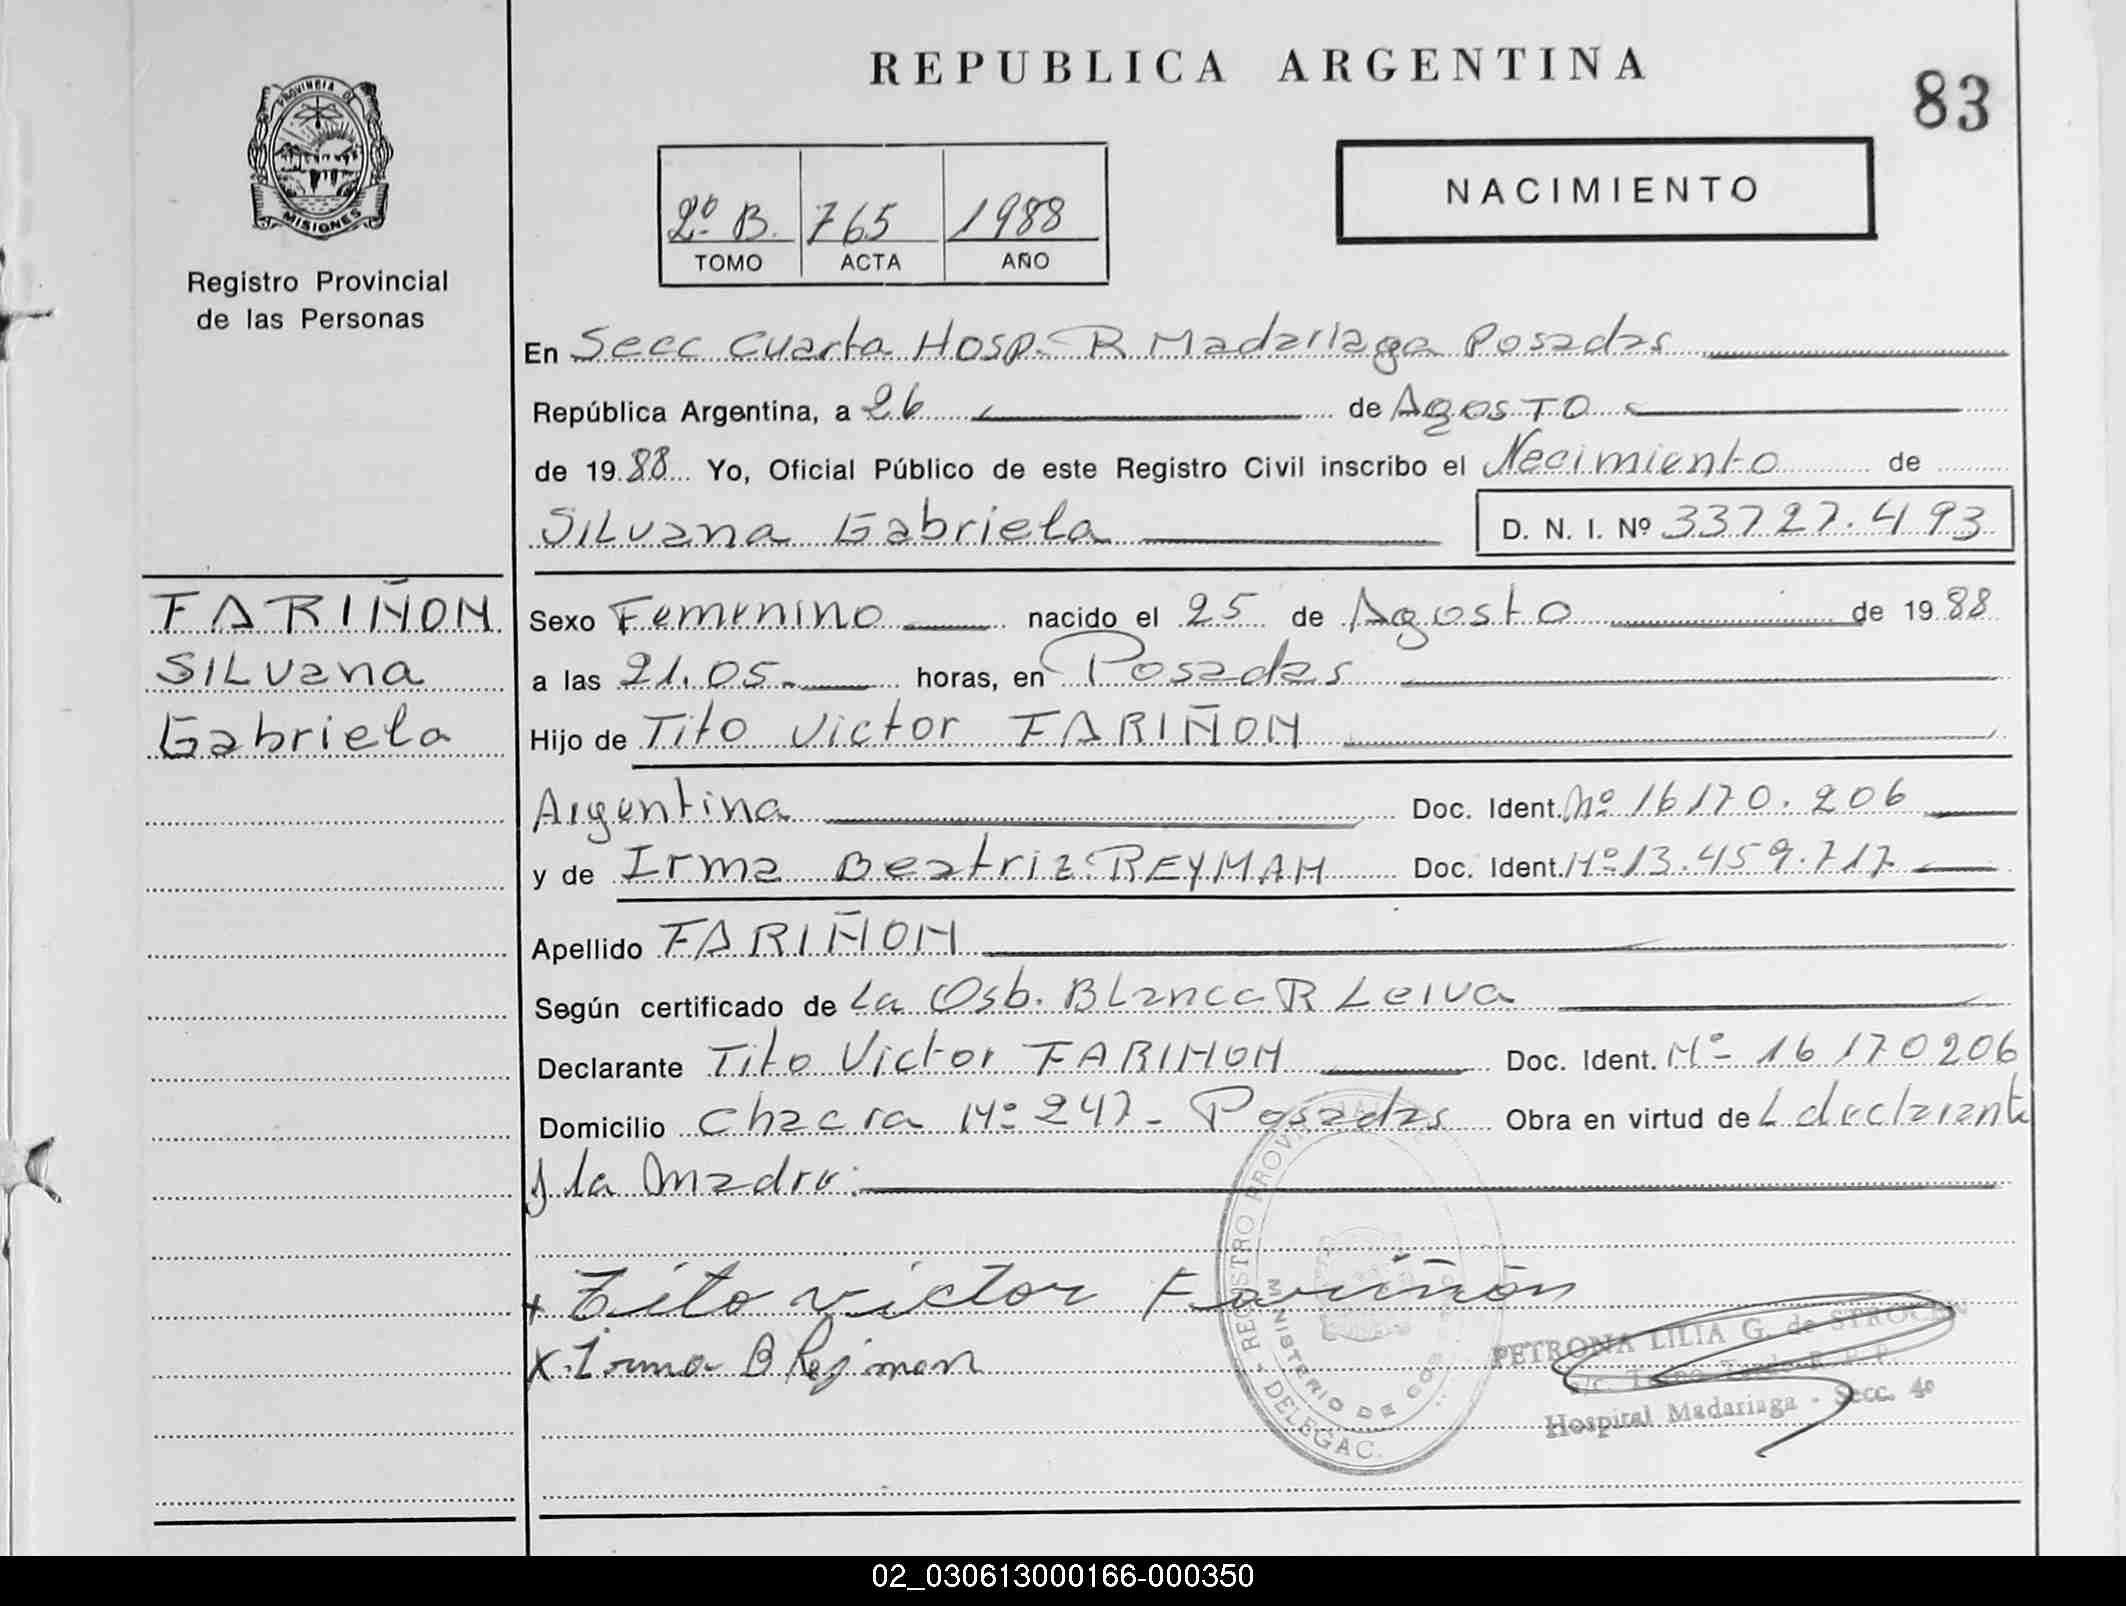 REPUBLICA ARGENTINA
83
PROVINCIA DE
MISIONES
Registro Provincial
de las Personas
2º B. 765 1988
TOMO ACTA AÑO
NACIMIENTO
En Secc Cuarta Hosp. R Madariaga Posadas
República Argentina, a 26 de Agosto
de 19 88 Yo, Oficial Público de este Registro Civil inscribo el Necimiento de
SILvana Gabriela D. N. I. Nº 33727.493
FARIÑON
SILvana
Gabriela
Sexo Femenino nacido el 25 de Agosto de 19 88
a las 21.05- horas, en Posadas
Hijo de Tito Victor FARIÑON
Argentina Doc. Ident. Nº 16170.206
y de Irma Beatriz REYMAN Doc. Ident. Nº 13.459.717
Apellido FARIÑON
Según certificado de La Osb. Blanca R Leiva
Declarante Tito Victor FARINON Doc. Ident. Nº- 16170206
Domicilio Chacra Nº 247- Posadas Obra en virtud de L declarante
y la Madre.
x Tito victor Fariñón
x Irma B Rejman
REGISTRO PROVINCIAL
MINISTERIO DE GOB
DELEGAC.
PETRONA LILIA G. de
Hospital Madariaga - Secc. 4º
02_030613000166-000350